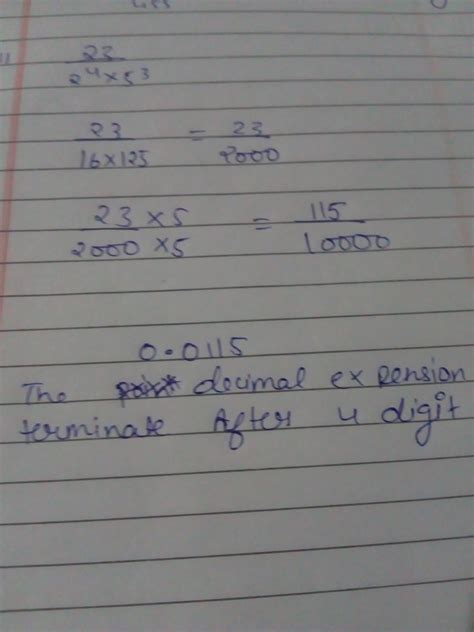 23
2⁴×5³
23 = 23
16×125 2000
23 ×5 = 115
2000 ×5 10000
0.0115
The decimal expension
terminate After 4 digit